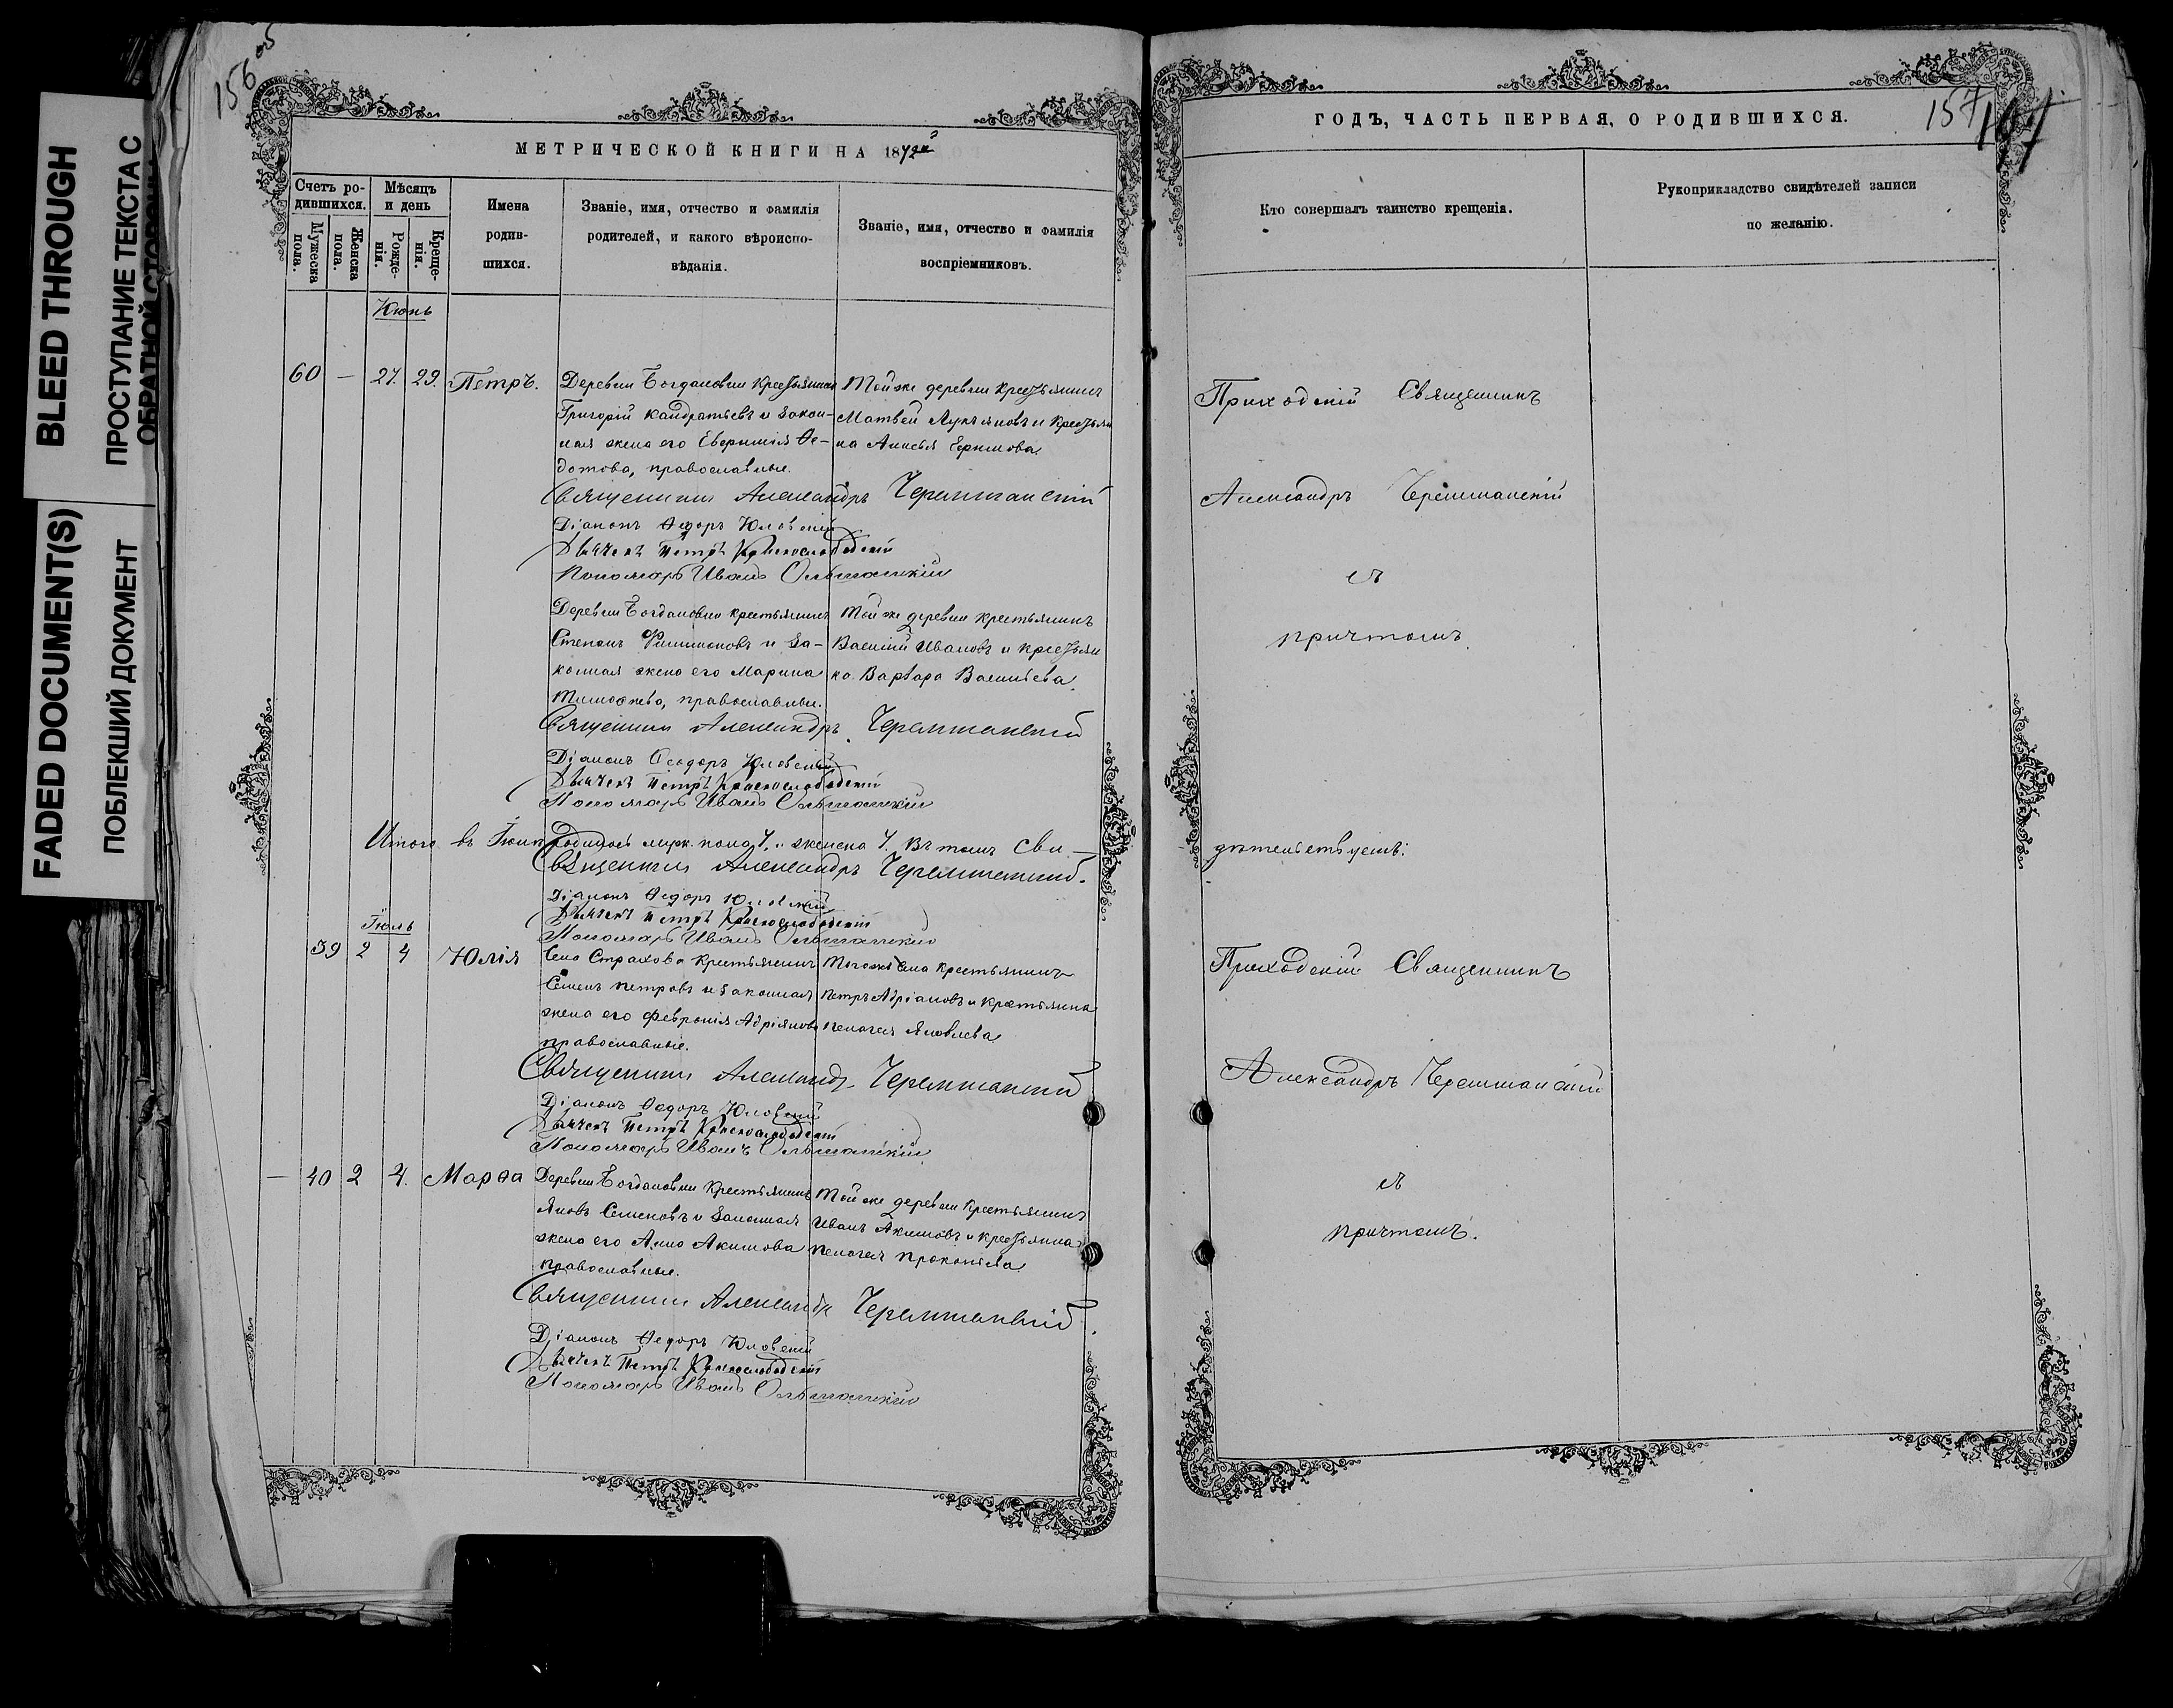 156 об
BLEED THROUGH
ПРОСТУПАНИЕ ТЕКСТА С
ОБРАТНОЙ СТОРОНЫ
FADED DOCUMENT(S)
ПОБЛЕКШИЙ ДОКУМЕНТ
МЕТРИЧЕСКОЙ КНИГИ НА 1872й
Счетъ ро-
дившихся.
Мужеска
пола.
Женска
пола.
Мѣсяцъ
и день
Рожде-
нія.
Креще-
нія.
Имена
родив-
шихся.
Званіе, имя, отчество и фамилія
родителей, и какого вѣроиспо-
вѣданія.
Званіе, имя, отчество и фамилія
воспріемниковъ.
Июнь
60 — 27. 29. Петръ. Деревни Богдановки крестьянинъ Той же деревни крестьянинъ
Григорій Кандратьевъ и закон- Матвей Лукъяновъ и крестьян
ная жена его Евфимія Ѳе- ка Анисья Ефимова
дотова, православные.
Священникъ Александръ Черемшанскій
Діаконъ Ѳедоръ Юловскій
Дьячекъ Петръ Краснослободскій
Пономарь Иванъ Ольшанскій
Деревни Богдановки крестьянинъ Той же деревни крестьянинъ
Степанъ Филимоновъ и за- Василій Ивановъ и крестьян
конная жена его Марина ка Варвара Васильева
православные.
Священникъ Александръ Черемшанскій
Діаконъ Ѳеодоръ Юловскій
Дьячекъ Петръ Краснослободскій
Пономарь Иванъ Ольшанскій
Итого въ Іюнѣ родилось муж. пола 7. и женска 7. Въ томъ сви-
Священникъ Александръ Черемшанскій.
Діаконъ Ѳедоръ Юловскій
Дьячекъ Петръ Краснослободскій
Пономарь Иванъ Ольшанскій
Іюль
39 2 4 Юлія Села Страхова крестьянинъ Того же села крестьянинъ
Семенъ Петровъ и законная Петръ Адріановъ и крестьянка
жена его Февронія Адріянова Пелагея Яковлева
православные.
Священникъ Александръ Черемшанскій
Діаконъ Ѳедоръ Юловскій
Дьячекъ Петръ Краснослободскій
Пономарь Иванъ Ольшанскій
— 40 2 4. Марѳа Деревни Богдановки крестьянинъ Той же деревни крестьянинъ
Яковъ Семеновъ и законная Иванъ Акимовъ и крестьянка
жена его Анна Акимова Пелагея Прокопьева
православные.
Священникъ Александръ Черемшанскій.
Діаконъ Ѳедоръ Юловскій
Дьячекъ Петръ Краснослободскій
Пономарь Иванъ Ольшанскій
ГОДЪ, ЧАСТЬ ПЕРВАЯ, О РОДИВШИХСЯ.
157
Кто совершалъ таинство крещенія.
Рукоприкладство свидѣтелей записи
по желанію.
Приходскій Священникъ
Александръ Черемшанскій
съ
причтомъ.
дѣтельствуемъ:
Приходскій Священникъ
Александръ Черемшанскій
съ
причтомъ.